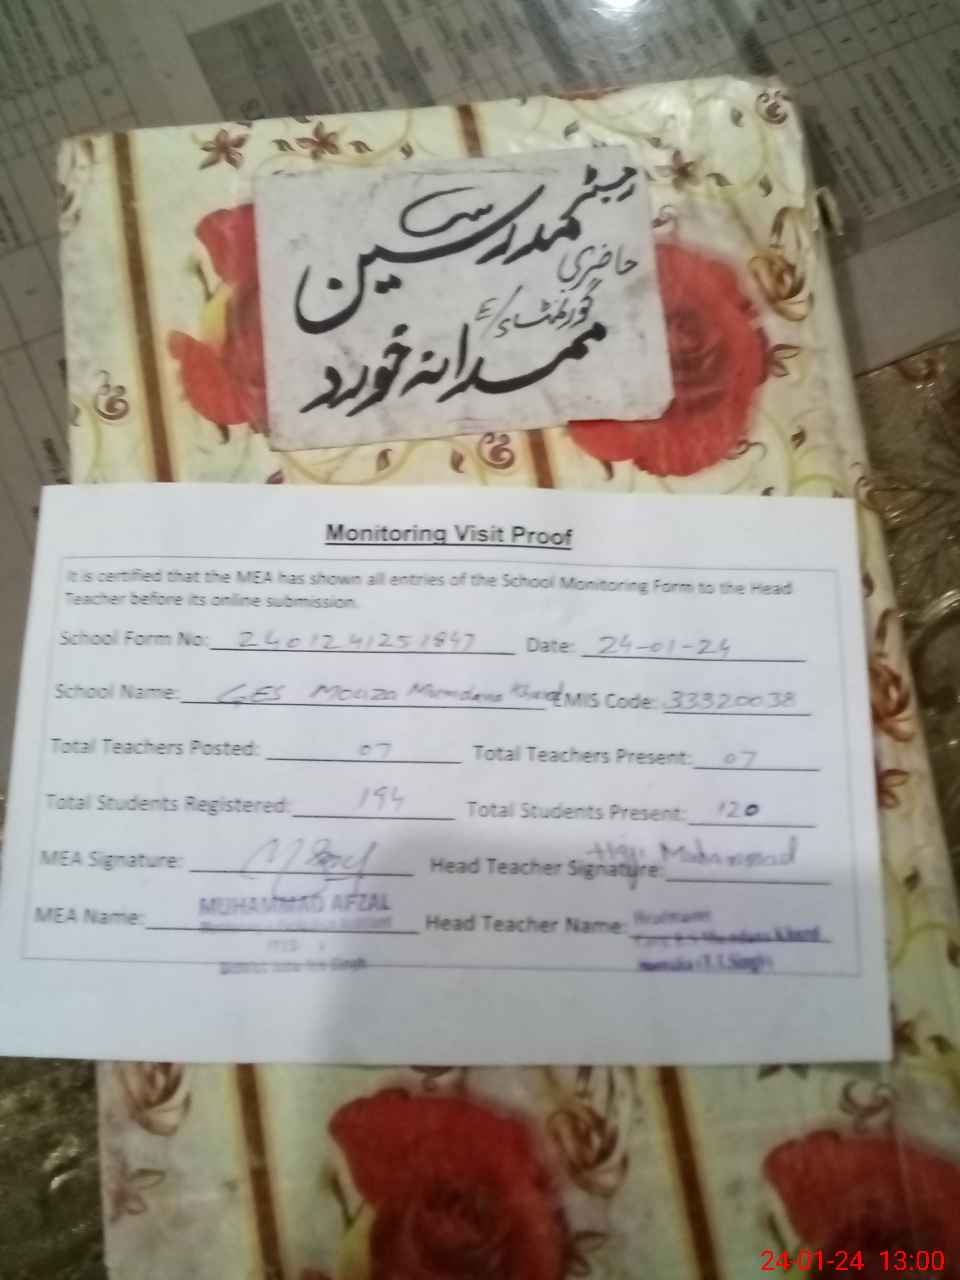 رجسٹر
حاضری مدرسین
گورنمنٹ
ممدانہ خورد
Monitoring Visit Proof
It is certified that the MEA has shown all entries of the School Monitoring Form to the Head
Teacher before its online submission.
School Form No: 2401241251847 Date: 24-01-24
School Name: GES Mouza Mumdana Khurd EMIS Code: 33320038
Total Teachers Posted: 07 Total Teachers Present: 07
Total Students Registered: 194 Total Students Present: 120
MEA Signature: Head Teacher Signature: Muhammad
MEA Name: MUHAMMAD AFZAL Head Teacher Name:
(T.T.Singh)
24-01-24 13:00